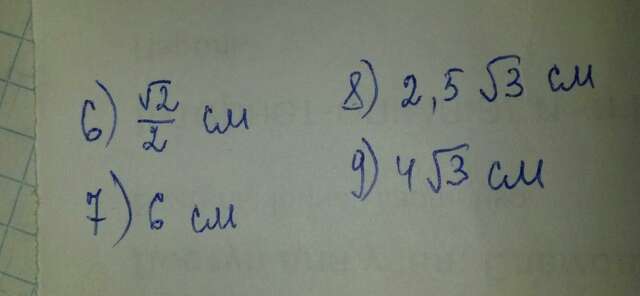 6) √2/2 см
7) 6 см
8) 2,5 √3 см
9) 4√3 см